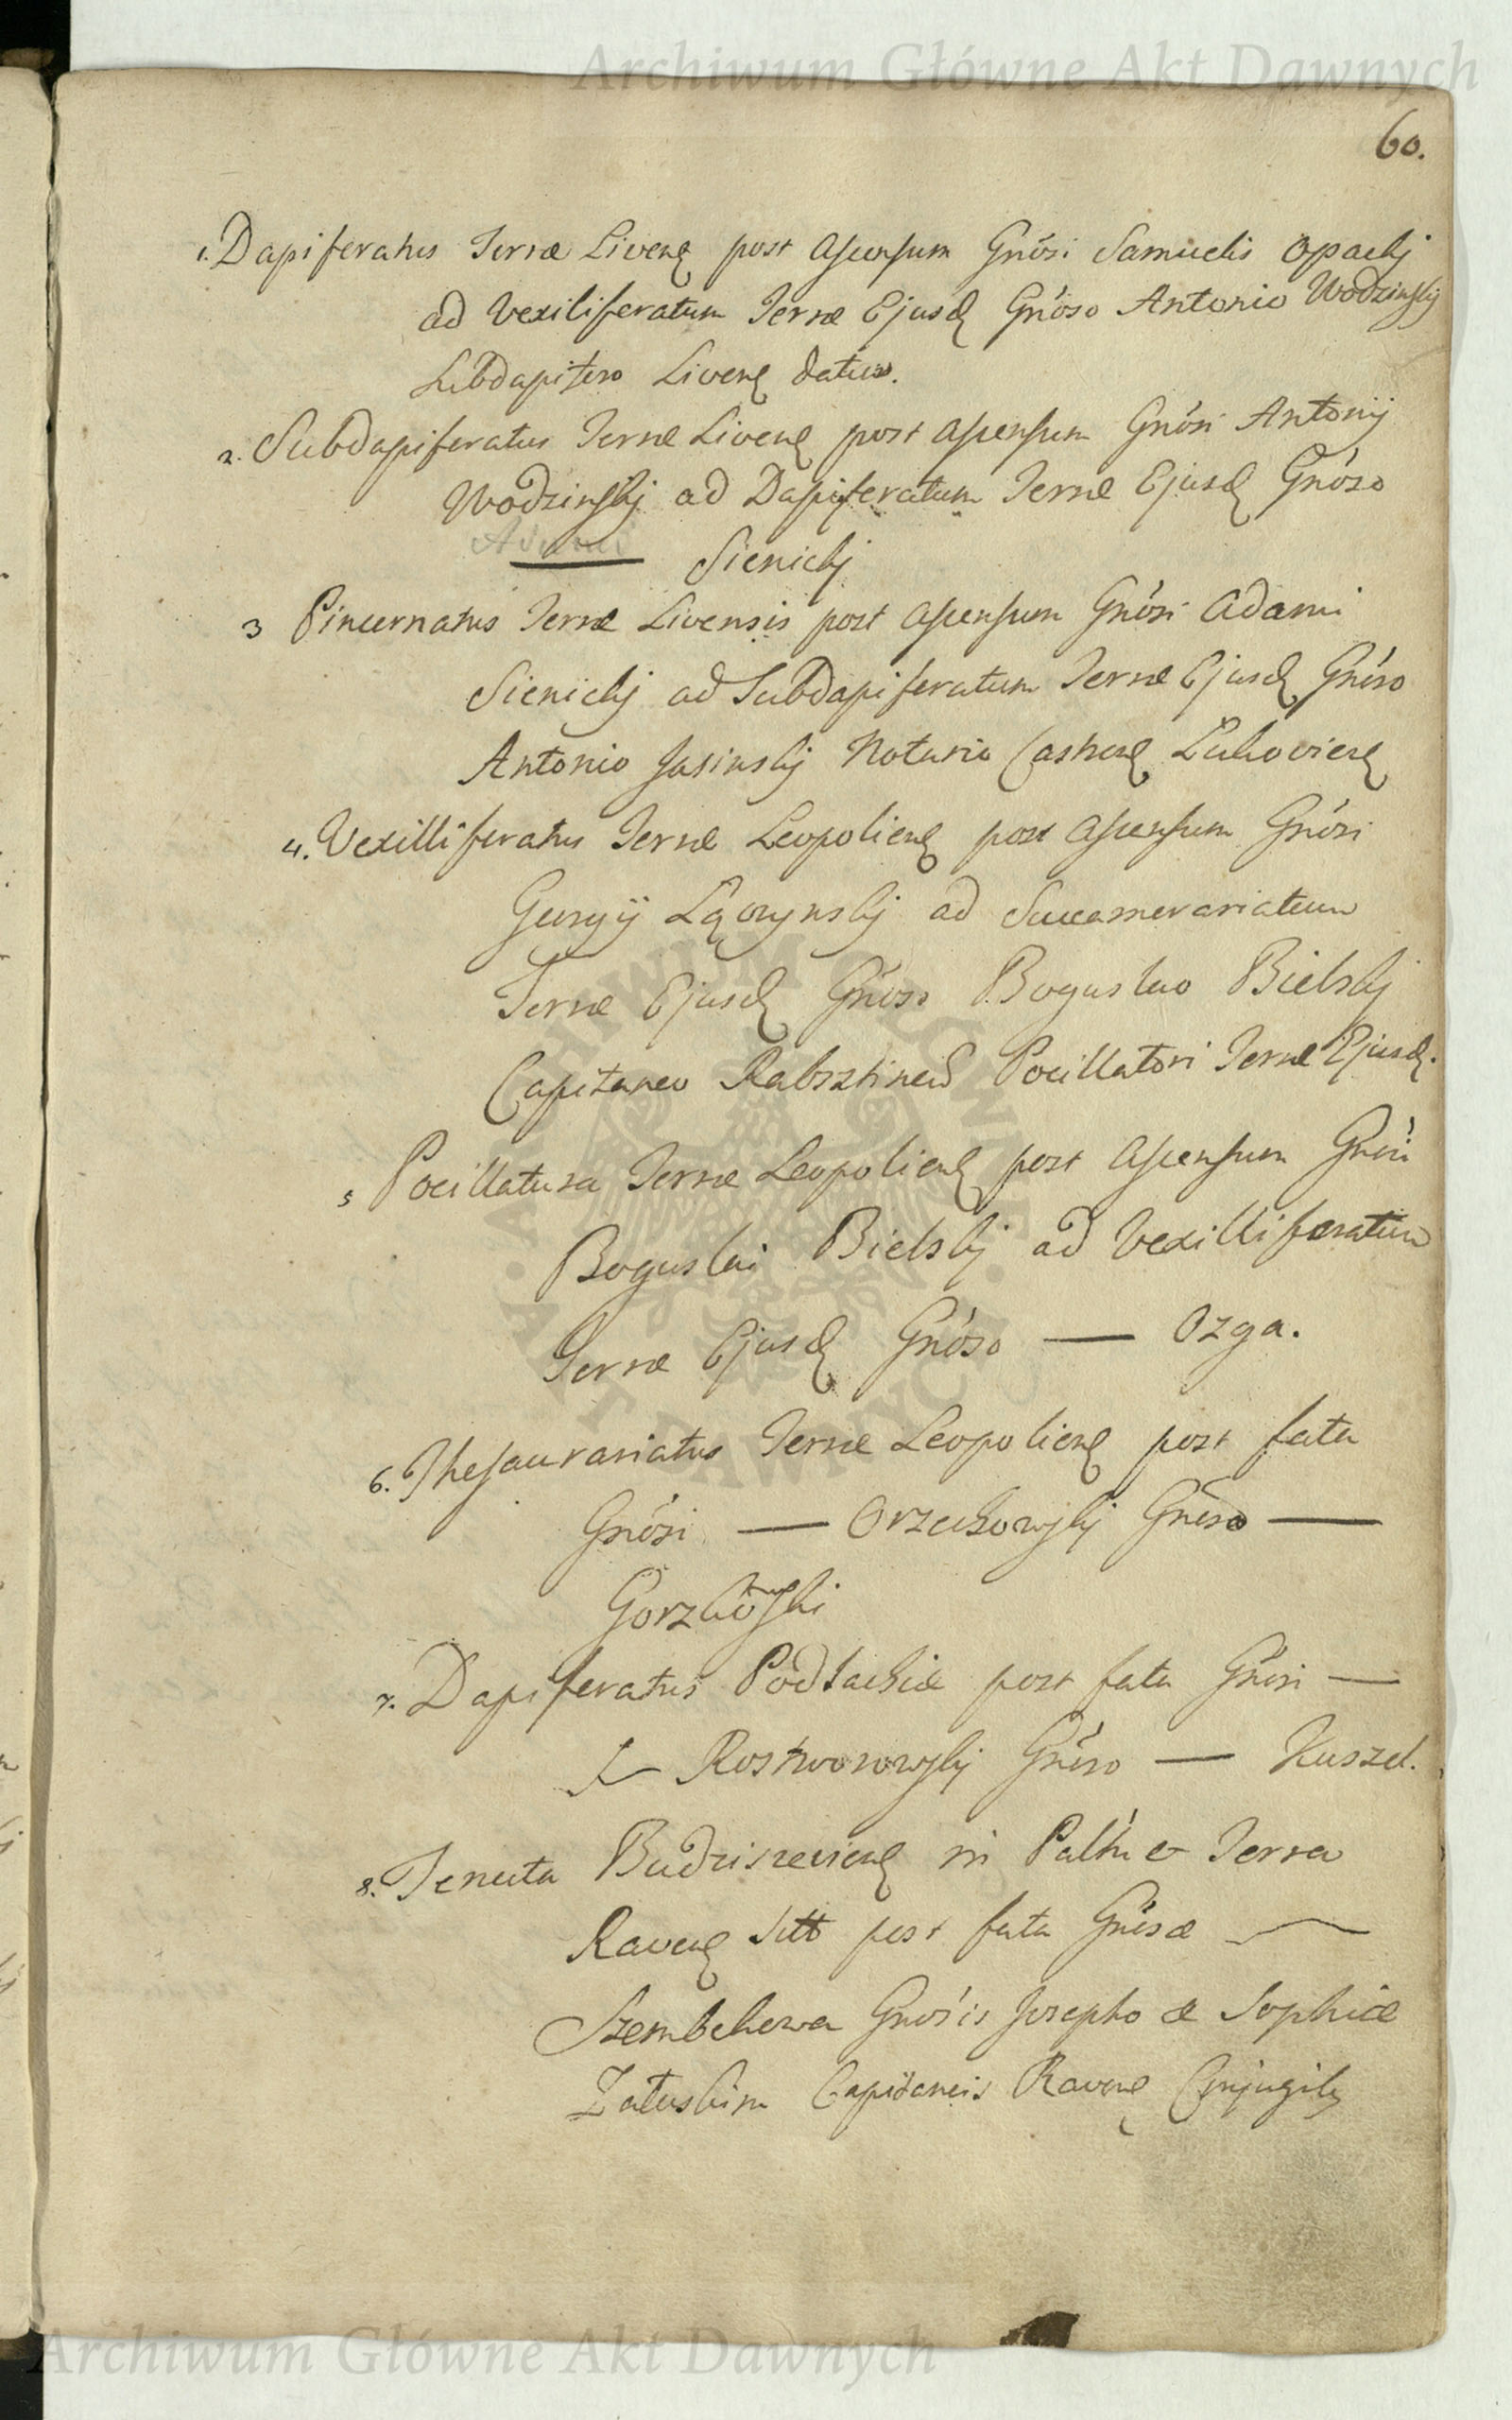 Archiwum Główne Akt Dawnych
60.
1. Dapiferatus Terræ Livenę post ascensum Gnósi Samuelis Opackj
ad Vexiliferatum Terræ Ejusdę Gnóso Antonio Wodzinskij
Subdapifero Livenę datus.
2. Subdapiferatus Terræ Livenę post ascensum Gnósi Antonij
Wodzinskj ad Dapiferatum Terræ Ejusdę Gnóso
Adamo — Sienickj
3 Pincernatus Terræ Livensis post ascensum Gnósi Adami
Sienickj ad Subdapiferatum Terræ Ejusdę Gnóso
Antonio Jasinskj Notario Castrenę Lukovienę
4. Vexilliferatus Terræ Leopolienę post ascensum Gnósi
Georgij Łączynskj ad Succamerariatum
Terræ Ejusdę Gnóso Boguslao Bielskj
Capitaneo Rabsztinens Pocillatori Terræ Ejusdę.
5 Pocillatura Terræ Leopolienę post ascensum Gnósi
Boguslai Bielskj ad Vexilliferatum
Terræ Ejusdę Gnóso — Ozga.
6. Thesaurariatus Terræ Leopolienę post fata
Gnósi — Orzechowskj Gnóso —
Gorzkowski
7. Dapiferatus Podlachiæ post fata Gnósi —
Rostworowskj Gnóso — Kuszel.
8. Tenuta Budziszevienę in Paltu & Terra
Ravenę sitt post fata Gnósæ —
Szembekowa Gnósis Josepho & Sophiæ
Załuskim Capitaneis Ravenę Conjugibę
ARCHIWUM GŁÓWNE AKT DAWNYCH
Archiwum Główne Akt Dawnych